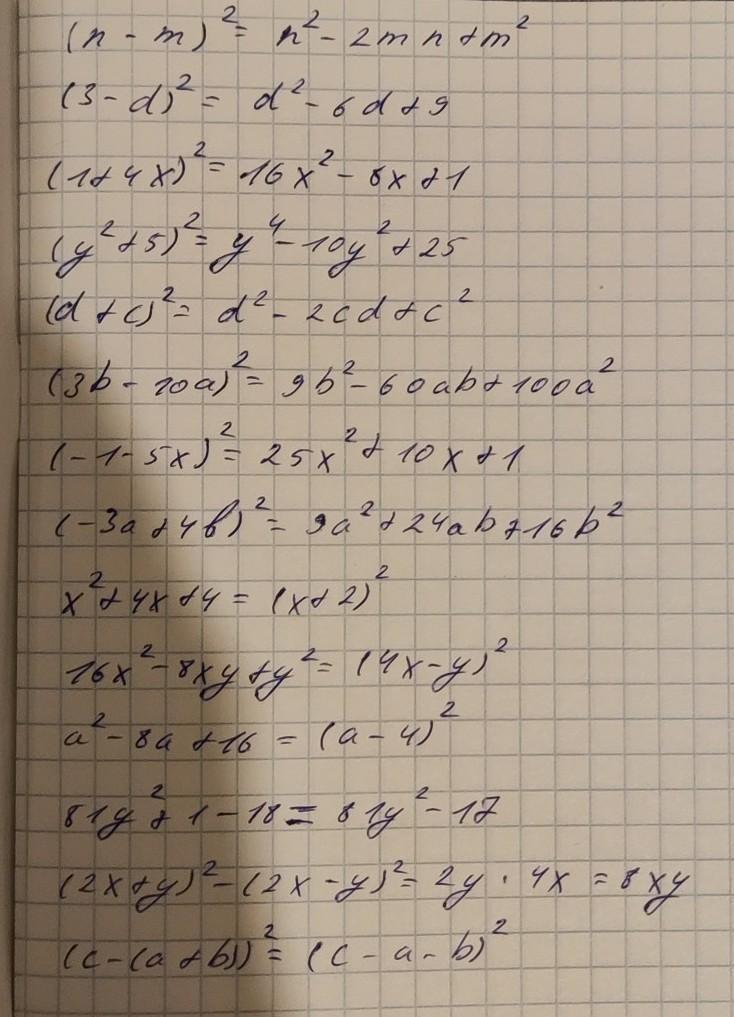 (n - m)² = n² - 2mn + m²
(3 - d)² = d² - 6d + 9
(1 + 4x)² = 16x² - 8x + 1
(y² + 5)² = y⁴ - 10y² + 25
(d + c)² = d² - 2cd + c²
(3b - 10a)² = 9b² - 60ab + 100a²
(-1 - 5x)² = 25x² + 10x + 1
(-3a + 4b)² = 9a² + 24ab + 16b²
x² + 4x + 4 = (x + 2)²
16x² - 8xy + y² = (4x - y)²
a² - 8a + 16 = (a - 4)²
81y² + 1 - 18 = 81y² - 17
(2x + y)² - (2x - y)² = 2y · 4x = 8xy
(c - (a + b))² = (c - a - b)²